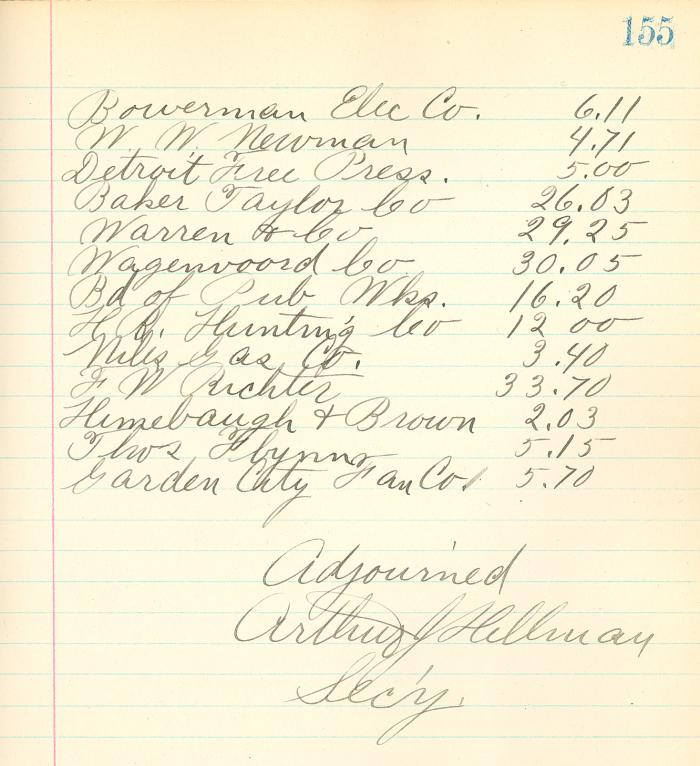 155
Bowerman Elec Co. 6.11
W. W. Newman 4.71
Detroit Free Press. 5.00
Baker Taylor Co 26.03
Warren & Co 29.25
Wagenvoord Co 30.05
Bd of Pub Wks. 16.20
H. R. Hunting Co 12 00
Niles Gas Co. 3.40
F W Richter 33.70
Himebaugh & Brown 2.03
Thos Flynn 5.15
Garden City Fan Co. 5.70
Adjourned
Arthur J Hillman
Sec'y.